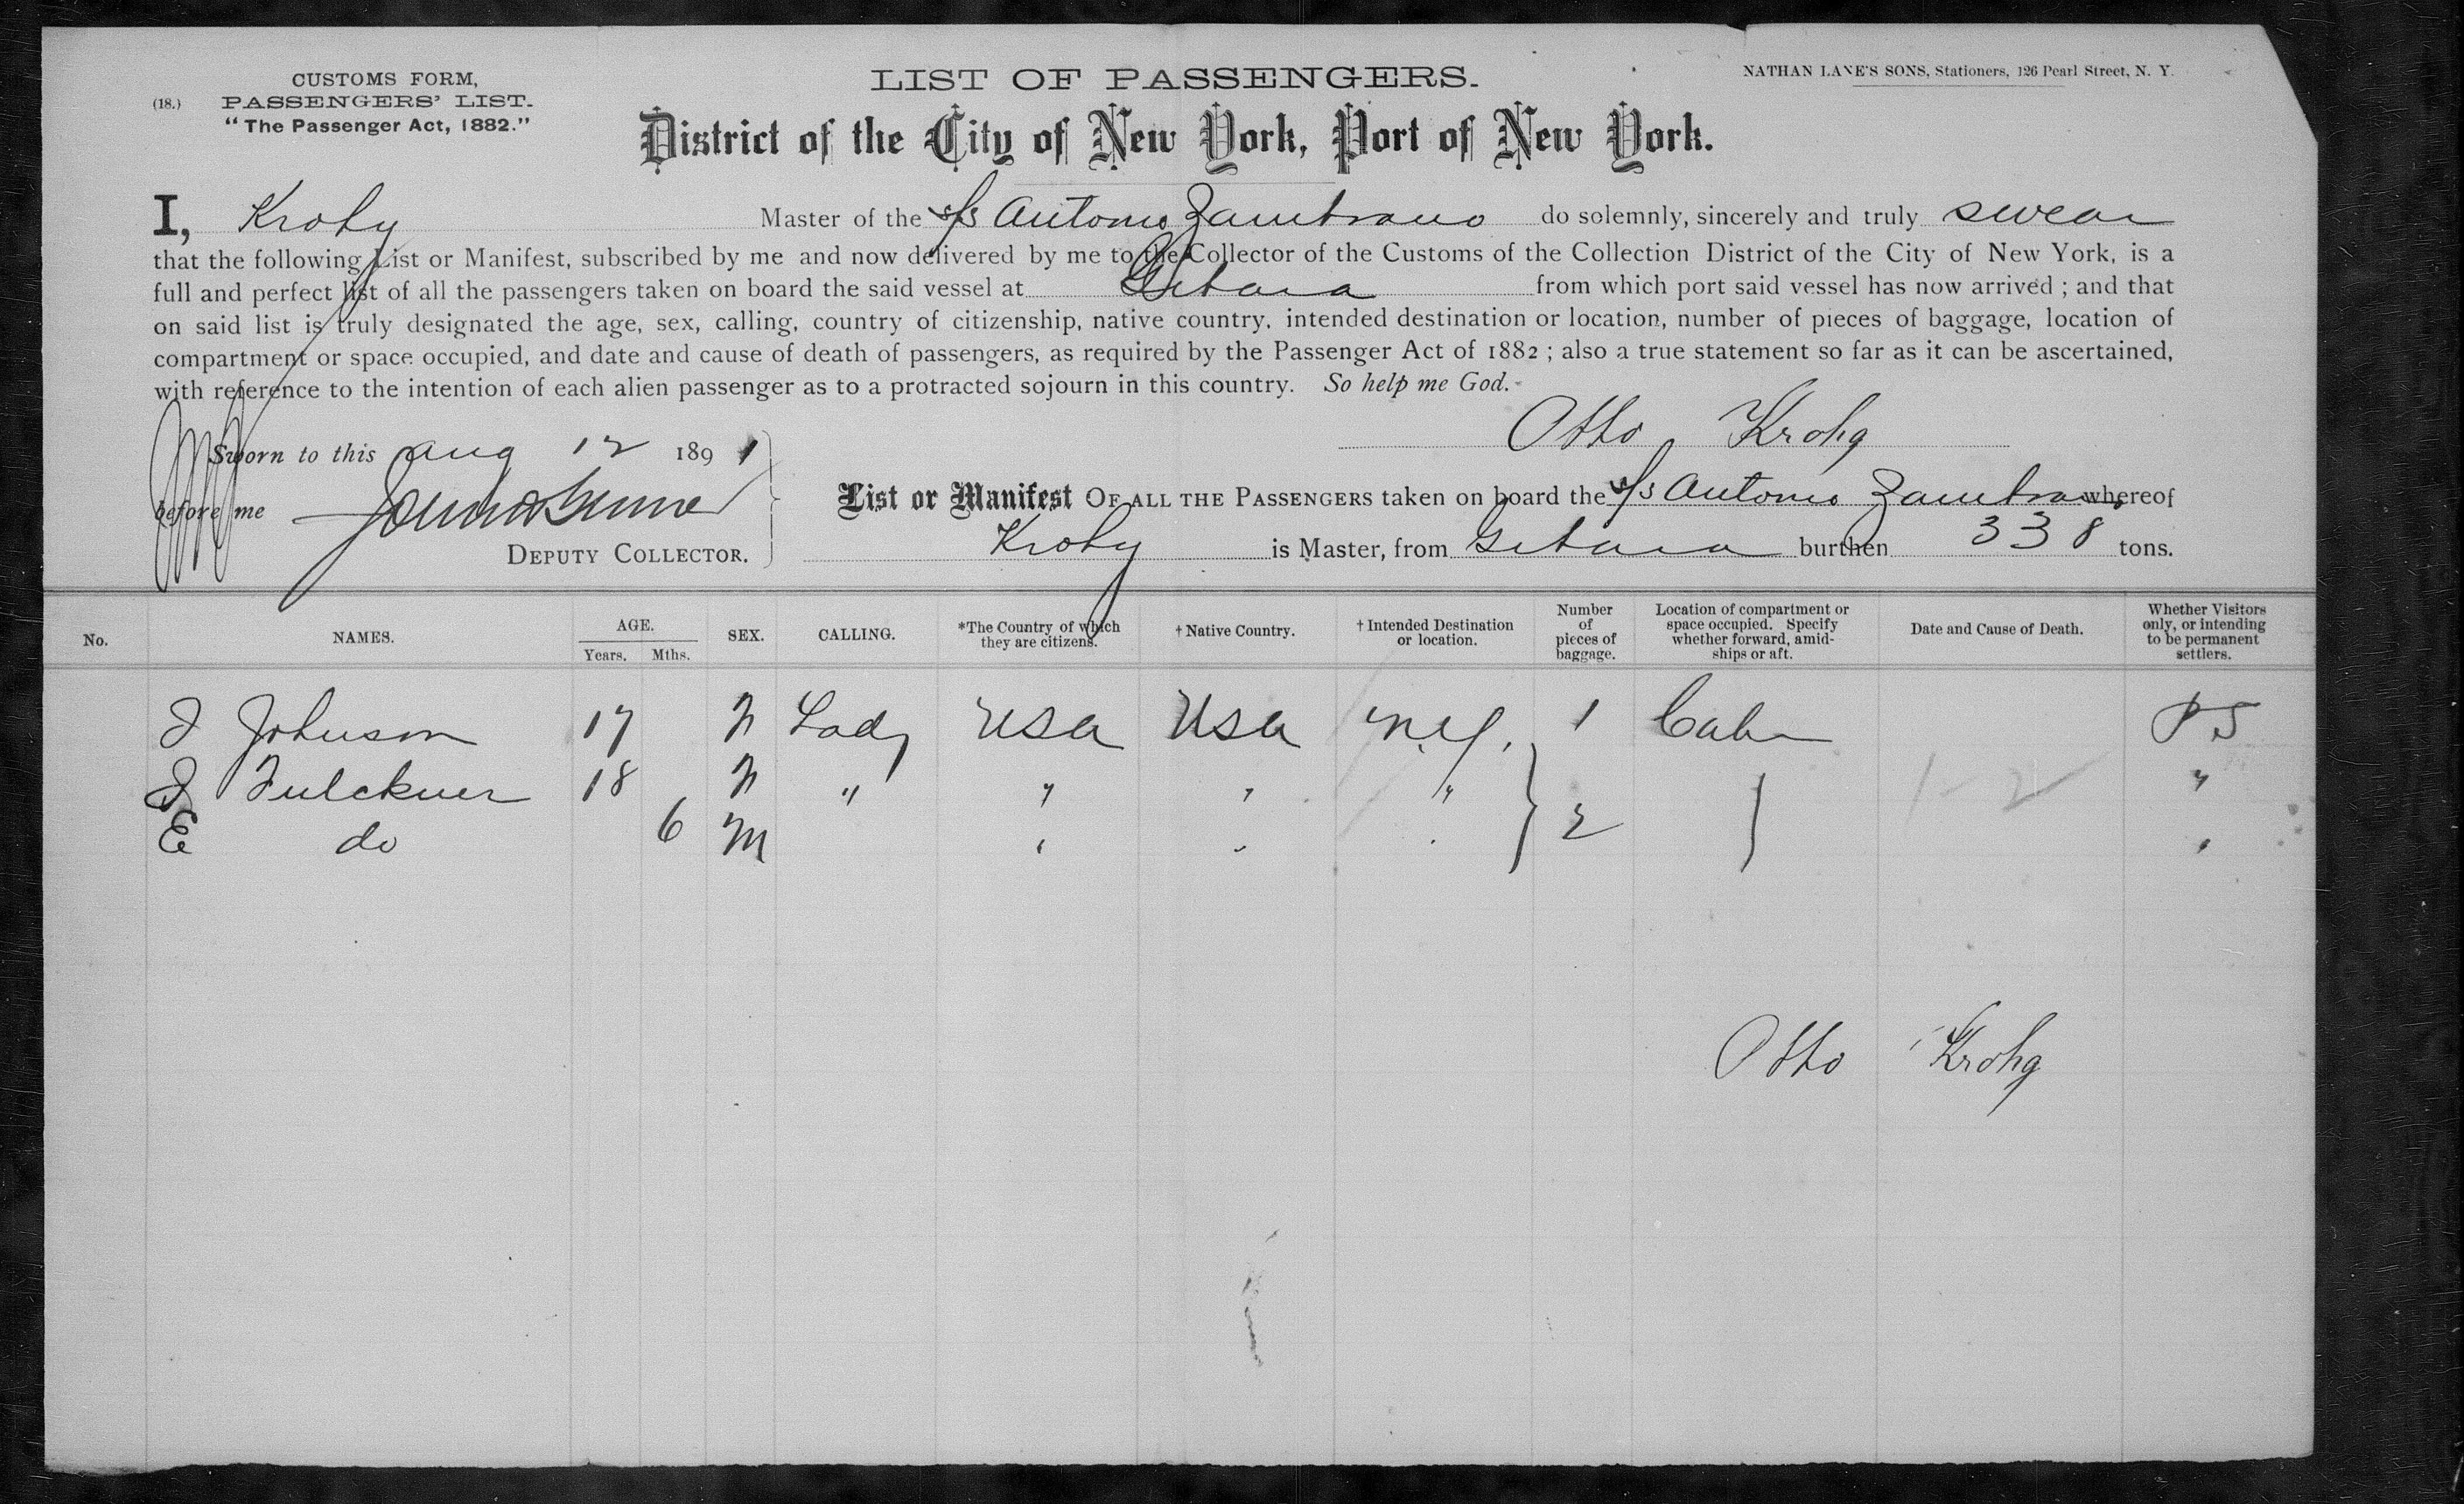 CUSTOMS FORM,
(18.) PASSENGERS' LIST.
"The Passenger Act, 1882."
LIST OF PASSENGERS.
NATHAN LANE'S SONS, Stationers, 126 Pearl Street, N. Y.
District of the City of New York, Port of New York.
I, Krohg Master of the s/s Antonio Zambrano do solemnly, sincerely and truly swear
that the following List or Manifest, subscribed by me and now delivered by me to the Collector of the Customs of the Collection District of the City of New York, is a
full and perfect list of all the passengers taken on board the said vessel at Gibara from which port said vessel has now arrived; and that
on said list is truly designated the age, sex, calling, country of citizenship, native country, intended destination or location, number of pieces of baggage, location of
compartment or space occupied, and date and cause of death of passengers, as required by the Passenger Act of 1882; also a true statement so far as it can be ascertained,
with reference to the intention of each alien passenger as to a protracted sojourn in this country. So help me God.
Otto Krohg
Sworn to this Aug 12 1891
before me
DEPUTY COLLECTOR.
List or Manifest OF ALL THE PASSENGERS taken on board the s/s Antonio Zambrano whereof
Krohg is Master, from Gibara burthen 338 tons.
No. NAMES. AGE. Years. Mths. SEX. CALLING. *The Country of which they are citizens. †Native Country. †Intended Destination or location. Number of pieces of baggage. Location of compartment or space occupied. Specify whether forward, amidships or aft. Date and Cause of Death. Whether Visitors only, or intending to be permanent settlers.
J Johnson 17 Lady USA USA N.Y. 1 Cabin P S
Fulckner 18 " " " " 2 1-2 "
E do 6 M " " " "
Otto Krohg